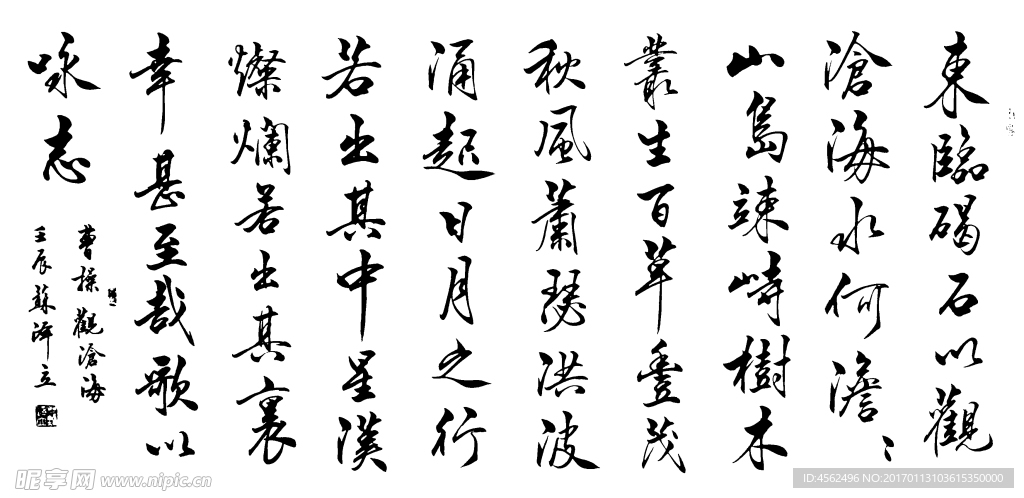 東臨碣石以觀
滄海水何澹澹
山島竦峙樹木
叢生百草豐茂
秋風蕭瑟洪波
涌起日月之行
若出其中星漢
燦爛若出其裏
幸甚至哉歌以
咏志
曹操觀滄海
壬辰蘇澤立
昵享网 www.nipic.cn
ID:4562496 NO:20170113103615350000